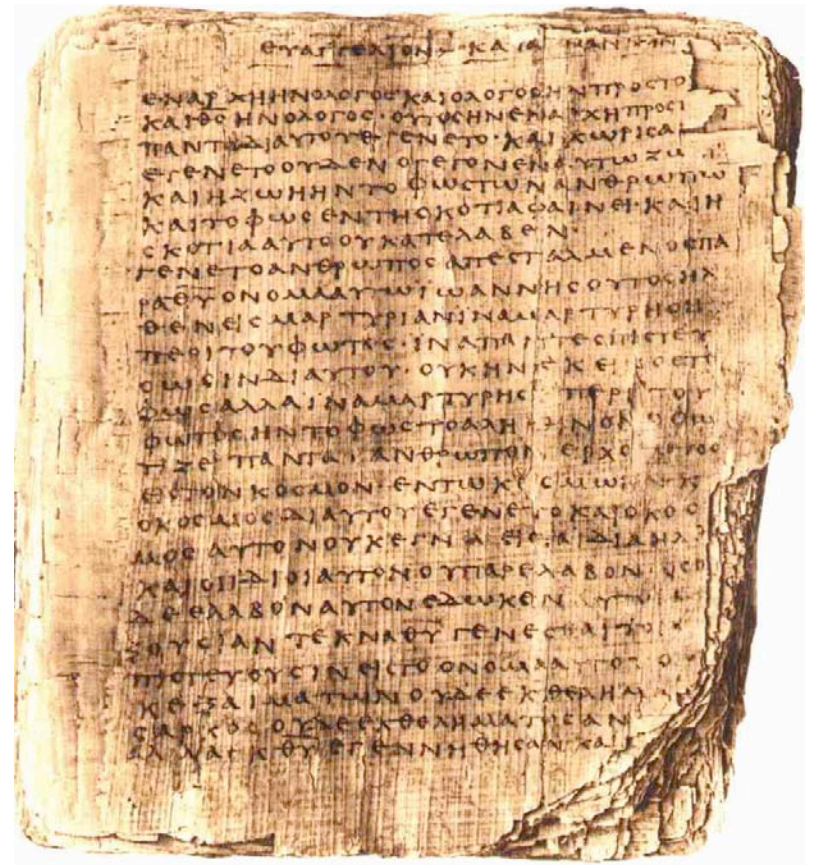 ΕΥΑΓΓΕΛΙΟΝ ΚΑΤΑ ΑΝΝΗΝ
ΕΝΑΡΧΗΗΝΟΛΟΓΟϹΚΑΙΟΛΟΓΟϹΗΝΠΡΟϹΤΟ
ΚΑΙΘϹΗΝΟΛΟΓΟϹ·ΟΥΤΟϹΗΝΕΝΑΡΧΗΠΡΟϹΤ
ΠΑΝΤΑΔΙΑΥΤΟΥΕΓΕΝΕΤΟ·ΚΑΙΧΩΡΙϹΑ
ΕΓΕΝΕΤΟΟΥΔΕΝΟΓΕΓΟΝΕΝΑΥΤΩΖΩ
ΚΑΙΗΖΩΗΗΝΤΟΦΩϹΤΩΝΑΝΘΡΩΠΩ
ΚΑΙΤΟΦΩϹΕΝΤΗϹΚΟΤΙΑΦΑΙΝΕΙ·ΚΑΙΗ
ϹΚΟΤΙΑΑΥΤΟΟΥΚΑΤΕΛΑΒΕΝ·
ΓΕΝΕΤΟΑΝΘΡΩΠΟϹΑΠΕϹΤΑΛΜΕΝΟϹΠΑ
ΡΑΘΥΟΝΟΜΑΑΥΤΩΙΩΑΝΝΗϹΟΥΤΟϹΗΛ
ΘΕΝΕΙϹΜΑΡΤΥΡΙΑΝΙΝΑΜΑΡΤΥΡΗϹΗ
ΠΕΡΙΤΟΥΦΩΤΟϹ·ΙΝΑΠΑΝΤΕϹΠΙϹΤΕΥ
ϹΩϹΙΝΔΙΑΥΤΟΥ·ΟΥΚΗΝΕΚΕΙΝΟϹΤΟ
ΦΩϹΑΛΛΑΙΝΑΜΑΡΤΥΡΗϹΗΠΕΡΙΤΟΥ
ΦΩΤΟϹΗΝΤΟΦΩϹΤΟΑΛΗΘΙΝΟΝΟΦΩ
ΤΙΖΕΙΠΑΝΤΑΑΝΘΡΩΠΟΝΕΡΧΟΜΕΝΟΝ
ΕΙϹΤΟΝΚΟϹΜΟΝ·ΕΝΤΩΚΟϹΜΩΗΝΚ
ΟΚΟϹΜΟϹΔΙΑΥΤΟΥΕΓΕΝΕΤΟΚΑΙΟΚΟϹ
ΜΟϹΑΥΤΟΝΟΥΚΕΓΝΩΕΙϹΤΑΙΔΙΑΗΛΘ
ΚΑΙΟΙΙΔΙΟΙΑΥΤΟΝΟΥΠΑΡΕΛΑΒΟΝ·ΟϹΟ
ΔΕΕΛΑΒΟΝΑΥΤΟΝΕΔΩΚΕΝΑΥΤΟΙϹΕ
ΞΟΥϹΙΑΝΤΕΚΝΑΘΥΓΕΝΕϹΘΑΙΤΟΙϹ
ΠΙϹΤΕΥΟΥϹΙΝΕΙϹΤΟΟΝΟΜΑΑΥΤΟΥΟΥ
ΚΕΞΑΙΜΑΤΩΝΟΥΔΕΕΚΘΕΛΗΜΑ
ϹΑΡΚΟϹΟΥΔΕΕΚΘΕΛΗΜΑΤΟϹΑΝ
ΑΛΛΑΕΚΘΥΕΓΕΝΝΗΘΗϹΑΝΚΑΙ